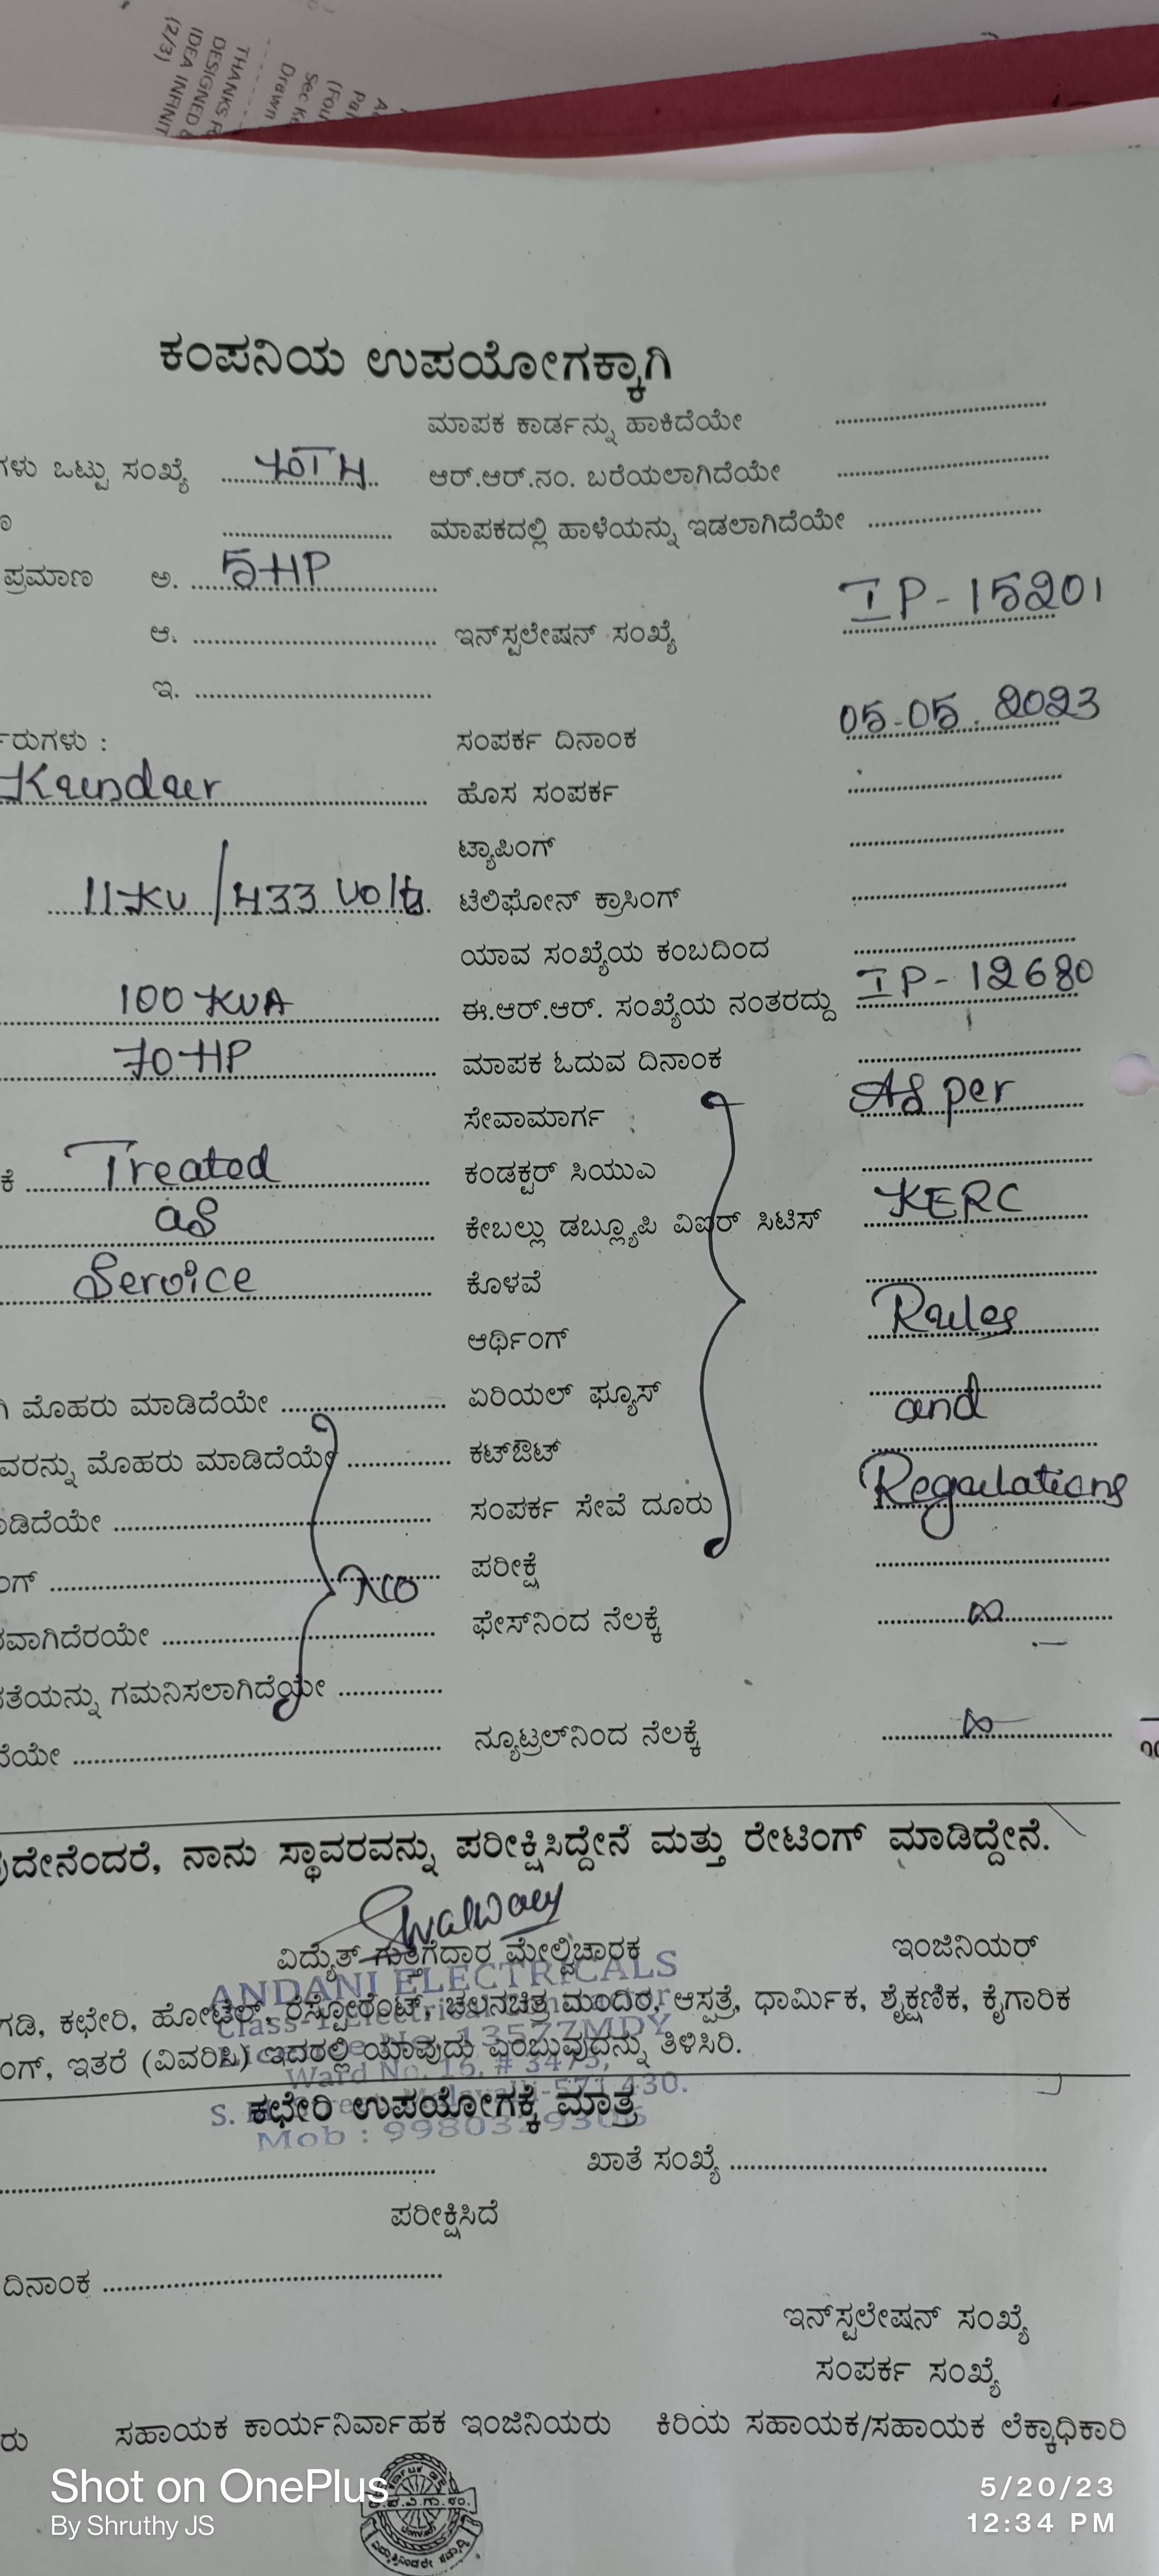 THANKS F
DESIGNED &
IDEA INFINIT
(2/3)
Drawn
Sec Ke
(Fou
ಕಂಪನಿಯ ಉಪಯೋಗಕ್ಕಾಗಿ
ಮಾಪಕ ಕಾರ್ಡನ್ನು ಹಾಕಿದೆಯೇ
ಗಳು ಒಟ್ಟು ಸಂಖ್ಯೆ ಆರ್.ಆರ್.ನಂ. ಬರೆಯಲಾಗಿದೆಯೇ
ಮಾಪಕದಲ್ಲಿ ಹಾಳೆಯನ್ನು ಇಡಲಾಗಿದೆಯೇ
ಪ್ರಮಾಣ ಅ. 5 HP
ಆ. ಇನ್‌ಸ್ಟಲೇಷನ್ ಸಂಖ್ಯೆ IP-15201
ಇ.
ರುಗಳು : ಸಂಪರ್ಕ ದಿನಾಂಕ 05-05-2023
Kundur ಹೊಸ ಸಂಪರ್ಕ
ಟ್ಯಾಪಿಂಗ್
11 KV / 433 Volts ಟೆಲಿಫೋನ್ ಕ್ರಾಸಿಂಗ್
ಯಾವ ಸಂಖ್ಯೆಯ ಕಂಬದಿಂದ
100 KVA ಈ.ಆರ್.ಆರ್. ಸಂಖ್ಯೆಯ ನಂತರದ್ದು IP-12680
70 HP ಮಾಪಕ ಓದುವ ದಿನಾಂಕ
ಸೇವಾಮಾರ್ಗ As per
ಕೆ Treated ಕಂಡಕ್ಟರ್ ಸಿಯುಎ
as ಕೇಬಲ್ಲು ಡಬ್ಲ್ಯೂಪಿ ವಿಐರ್ ಸಿಟಿಸ್ KERC
Service ಕೊಳವೆ
ಆರ್ಥಿಂಗ್ Rules
ಮೊಹರು ಮಾಡಿದೆಯೇ ಏರಿಯಲ್ ಫ್ಯೂಸ್ and
ವರನ್ನು ಮೊಹರು ಮಾಡಿದೆಯೇ ಕಟ್‌ಔಟ್
ಾಡಿದೆಯೇ ಸಂಪರ್ಕ ಸೇವೆ ದೂರು Regulations
ಂಗ್ No ಪರೀಕ್ಷೆ
ರವಾಗಿದೆರಯೇ ಫೇಸ್‌ನಿಂದ ನೆಲಕ್ಕೆ ∞
ತೆಯನ್ನು ಗಮನಿಸಲಾಗಿದೆಯೇ
ದೆಯೇ ನ್ಯೂಟ್ರಲ್‌ನಿಂದ ನೆಲಕ್ಕೆ ∞
ದೇನೆಂದರೆ, ನಾನು ಸ್ಥಾವರವನ್ನು ಪರೀಕ್ಷಿಸಿದ್ದೇನೆ ಮತ್ತು ರೇಟಿಂಗ್ ಮಾಡಿದ್ದೇನೆ.
ವಿದ್ಯುತ್ ಗುತ್ತಿಗೆದಾರ ಮೇಲ್ವಿಚಾರಕ ಇಂಜಿನಿಯರ್
ANDANI ELECTRICALS
ಗಡಿ, ಕಛೇರಿ, ಹೋಟೆಲ್, ರೆಸ್ಟೋರೆಂಟ್, ಚಲನಚಿತ್ರ ಮಂದಿರ, ಆಸ್ಪತ್ರೆ, ಧಾರ್ಮಿಕ, ಶೈಕ್ಷಣಿಕ, ಕೈಗಾರಿಕ
13577MDY
ಂಗ್, ಇತರೆ (ವಿವರಿಸಿ) ಇದರಲ್ಲಿ ಯಾವುದು ಎಂಬುವುದನ್ನು ತಿಳಿಸಿರಿ.
Ward No. 16, # 3475,
-571 430.
ಕಛೇರಿ ಉಪಯೋಗಕ್ಕೆ ಮಾತ್ರ
Mob :
ಖಾತೆ ಸಂಖ್ಯೆ
ಪರೀಕ್ಷಿಸಿದೆ
ದಿನಾಂಕ
ಇನ್‌ಸ್ಟಲೇಷನ್ ಸಂಖ್ಯೆ
ಸಂಪರ್ಕ ಸಂಖ್ಯೆ
ರು ಸಹಾಯಕ ಕಾರ್ಯನಿರ್ವಾಹಕ ಇಂಜಿನಿಯರು ಕಿರಿಯ ಸಹಾಯಕ/ಸಹಾಯಕ ಲೆಕ್ಕಾಧಿಕಾರಿ
Shot on OnePlus
By Shruthy JS
5/20/23
12:34 PM